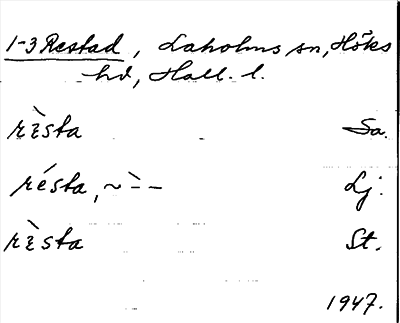 1-3 Restad, Laholms sn, Höks
hd, Hall. l.
rɛ̀sta Sa.
résta, ~ ̀ - - Lj.
rɛ̀sta St.
1947.